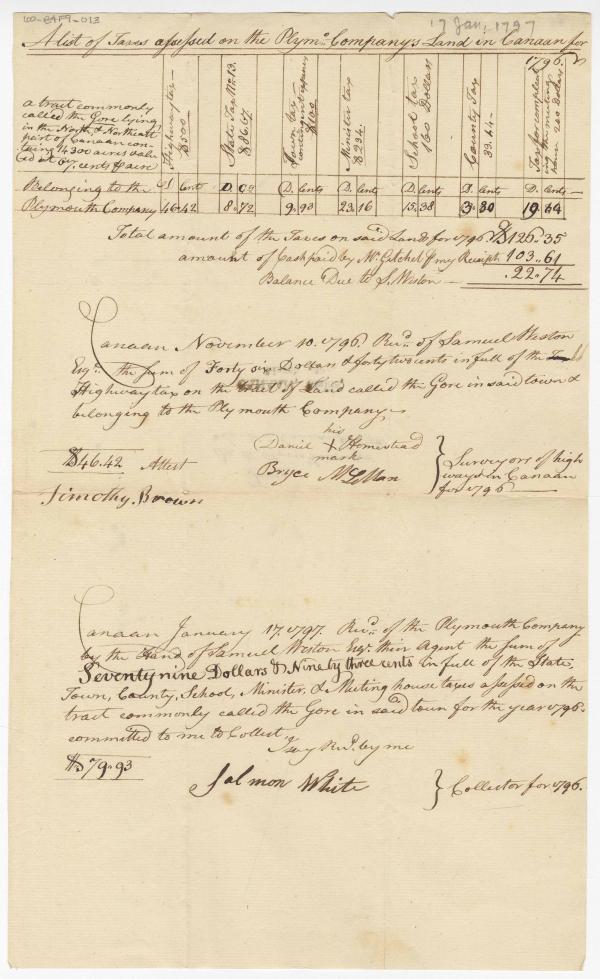 60-E4F9-013
17 Jan, 1797
A list of Taxes assessed on the Plymo. Company's Land in Canaan for
1796.
a tract commonly
called the Gore lying
in the North & Northeast
part of Canaan con-
taining 14300 acres valu
ed at 67. cents ⅌ acre
Highway tax
$500
State Tax No. 13.
$86.67
Town tax
contingent expences
$100
Minister tax
$234.
School tax
160 Dollars
County Tax
33.41
Tax for compleat
the meeting
house 200 Dollars
Belonging to the D Cents D. C D. Cents D. Cents D. Cents D. Cents D. Cents
Plymouth Company 46.42 8.72 9.93 23.16 15.38 3.80 19.04
Total amount of the Taxes on said Land for 1796. $126.35
amount of Cash paid by Mr Getchel ⅌ my Receipt 103.61
Balance Due to S. Weston 22.74
Canaan November 10. 1796. Recd. of Samuel Weston
Esqr. the sum of Forty six Dollars & forty two cents in full of the
Highway tax on the tract of Land called the Gore in said town &
belonging to the Plymouth Company
his
Daniel X Homestead
mark
$46.42 Attest
Bryce McLellan
Surveyors of high
ways in Canaan
for 1796
Timothy. Brown
Canaan January 17. 1797. Recd. of the Plymouth Company
by the Hand of Samuel Weston Esqr. their Agent the sum of
Seventy nine Dollars & Ninety three cents in full of the State,
Town, County, School, Minister, & Meeting house taxes assessed on the
tract commonly called the Gore in said town for the year 1796.
committed to me to Collect
I say Recd. by me
$79.93
Salmon White
Collector for 1796.